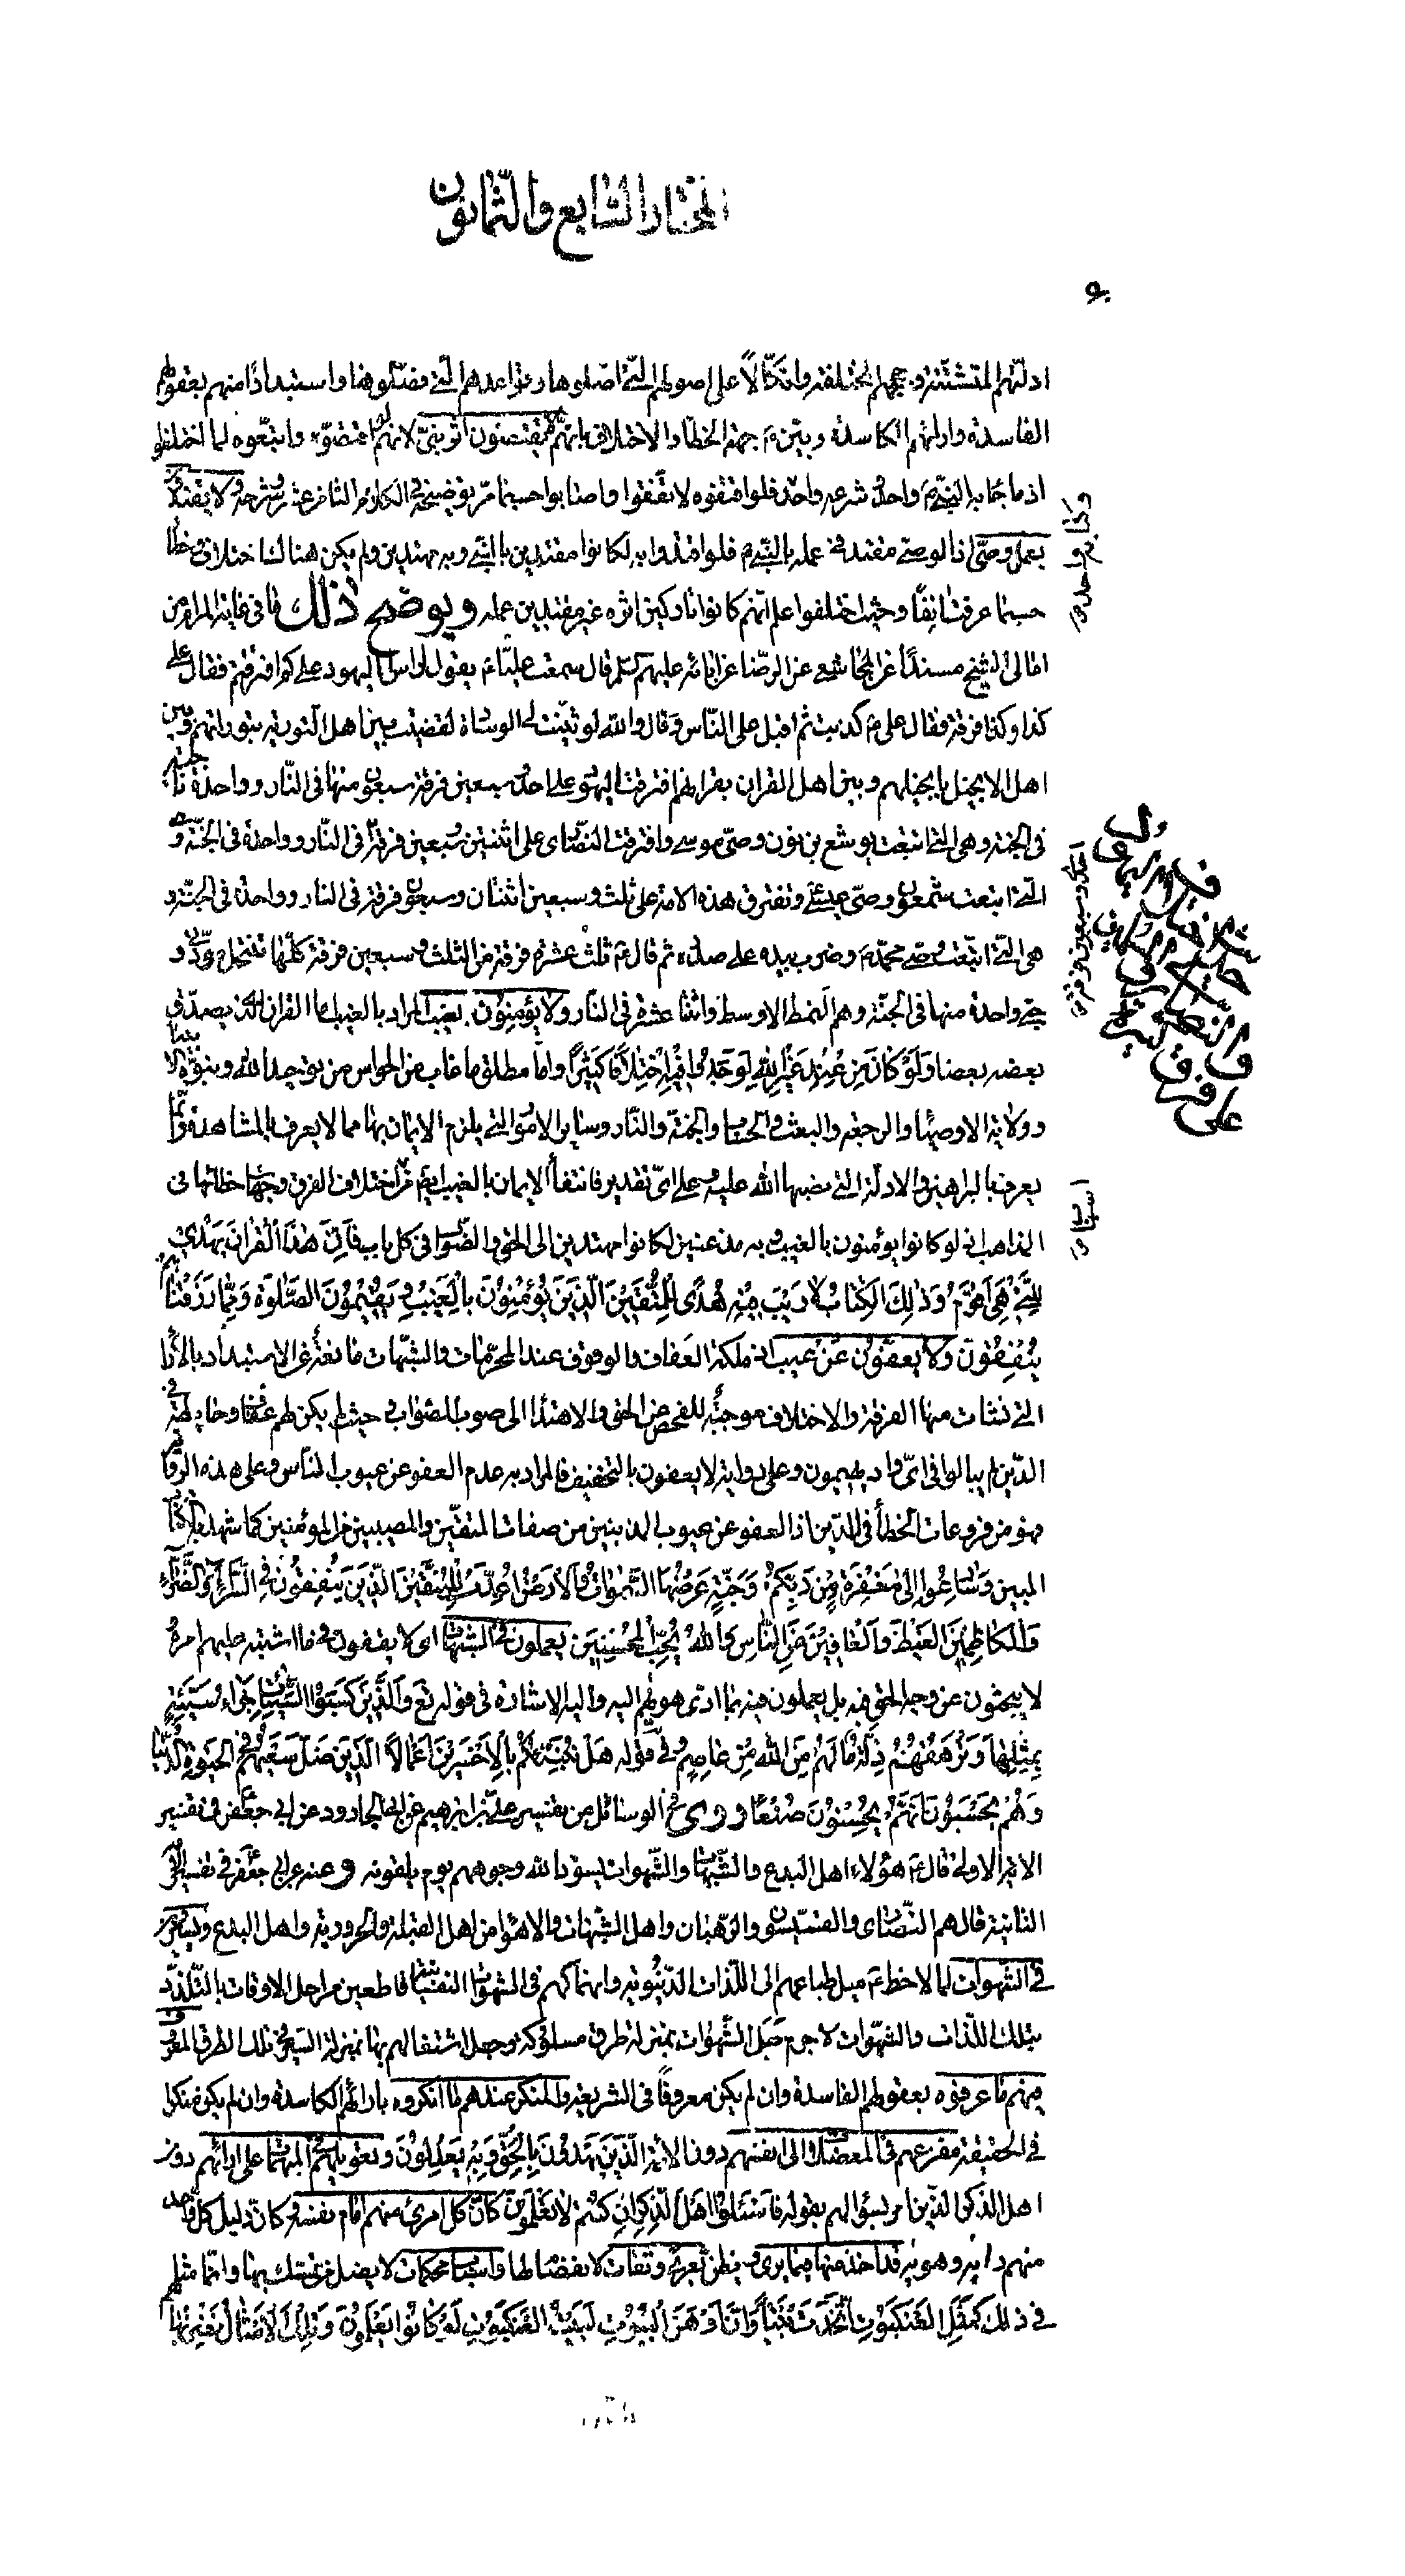 المختار السابع والثمانون
ادلّتهم المتشتّتة و المختلفة واتّكالاً على اصولهم الّتي اصّلوها وقواعدهم الّتي فصّلوها واستبداداً منهم بعقولهم
الفاسدة وارائهم الكاسدة وبيّن جهة الخطاء والاختلاف بانّهم لا يقتصّون اثر نبيّ لانّهم لو اقتصّوه واتبعوه لما اختلفوا
اذ ما جاء به النّبيّ واحد وشرعه واحد فلو اقتفوه لاتّفقوا واصابوا حسبما مرّ توضيحه في الكلام الثامن عشر وشرحه ولا يقتدون
بعمل وصيّ اذ الوصي مقتد في عمله بالنّبي فلو اقتدوا به لكانوا مقتدين بالنّبي وبه مهتدين ولم يكن هناك اختلاف وخطاء
حسبما عرفت انفًا وحيث اختلفوا علم انّهم كانوا تاركين اثره غير مقتدين عمله ويوضح ذلك ما في غاية المرام من
امالى الشيخ مسندًا عن المجاشعي عن الرضا عن ابائه عليهم السّلم قال سمعت عليّاً يقول لراس اليهود على كم افترقتم فقال على
كذا وكذا فرقة فقال على كذبت ثم اقبل على النّاس وقال والله لو ثنّيت لى الوسادة لقضيت بين اهل التورية بتوراتهم وبين
اهل الانجيل بانجيلهم وبين اهل القران بقرانهم افترقت اليهود على احد وسبعين فرقة سبعون منها في النّار وواحدة ناجية
في الجنة وهى الّتي اتبعت يوشع بن نون وصيّ موسى وافترقت النصارى على اثنتين وسبعين فرقة في النّار وواحدة في الجنّة وهي
الّتي اتبعت شمعون وصيّ عيسى وتفترق هذه الامة على ثلث وسبعين اثنتان وسبعون فرقة في النار وواحدة في الجنّة و
هى الّتي اتبعت وصيّ محمد وضرب بيده على صدره ثم قال ثلث عشرة فرقة من الثلث وسبعين فرقة كلّها تنتحل مودّتي و
حبّي واحدة منها في الجنّة وهم النمط الاوسط واثنتا عشرة في النار ولا يؤمنون بغيب المراد بالغيب امّا القران الّذي يصدّق
بعضه بعضا وَلَوْ كانَ مِنْ عِنْدِ غَيْرِ اللهِ لَوَجَدُوا فيهِ اخْتِلافًا كَثيرًا وامّا مطلق ما غاب عن الحواس من توحيد الله ونبوّة الانبياء
وولاية الاوصياء والرجعة والبعث والحساب والجنّة والنّار وساير الامور الّتي يلزم الايمان بها مما لا يعرف بالمشاهدة وانّما
يعرف بالبراهين والادلّة الّتي نصبها الله عليه وعلى ايّ تقدير فانتفاء الايمان بالغيب من اختلاف الفرق وجهة خطائها في
المذاهب اذ لو كانوا يؤمنون بالغيب وبه مذعنين لكانوا مهتدين الى الحق والصّواب في كل باب فَاِنَّ هٰذَا الْقُرانَ يَهْدي
لِلَّتي هِيَ اَقْوَمُ وَذٰلِكَ الْكِتابُ لا رَيْبَ فيهِ هُدًى لِلْمُتَّقينَ الَّذينَ يُؤْمِنُونَ بِالْغَيْبِ وَيُقيمُونَ الصَّلٰوةَ وَمِمّا رَزَقْناهُمْ
يُنْفِقُونَ ولا يعفون عن عيب اذ ملكة العفاف والوقوف عند المحرّمات والشبهات مانعة عن الاستبداد بالآراء
الّتي نشات منها الفرقة والاختلاف موجبة للفحص عن الحق والاهتداء الى صوب الصّواب وحيث لم يكن لهم عفاف وحايطة في
الدّين لم يبالوا في ايّ واد يهيمون وعلى رواية لا يعفون بالتخفيف فالمراد به عدم العفو عن عيوب الناس وعلى هذه الرّواية
فهو من فروعات الخطأ في الدّين اذ العفو عن عيوب المذنبين من صفات المتقين والمصيبين من المؤمنين كما شهد به الكتاب
المبين وَسارِعُوا اِلى مَغْفِرَةٍ مِنْ رَبِّكُمْ وَجَنَّةٍ عَرْضُهَا السَّمٰواتُ وَالْاَرْضُ اُعِدَّتْ لِلْمُتَّقينَ الَّذينَ يُنْفِقُونَ فِي السَّرّاءِ وَالضَّرّاءِ
وَالْكاظِمينَ الْغَيْظَ وَالْعافينَ عَنِ النّاسِ وَاللهُ يُحِبُّ الْمُحْسِنينَ يعملون في الشبهات اى لا يقفون في ما اشتبه عليهم امره
لا يبحثون عن وجه الحق فيه بل يعملون فيه بما ادّى هويهم اليه واليه الاشارة في قوله تع وَالَّذينَ كَسَبُوا السَّيِّئاتِ جَزاءُ سَيِّئَةٍ
بِمِثْلِها وَتَرْهَقُهُمْ ذِلَّةٌ ما لَهُمْ مِنَ اللهِ مِنْ عاصِمٍ وفي قوله هَلْ نُنَبِّئُكُمْ بِالْاَخْسَرينَ اَعْمالًا الَّذينَ ضَلَّ سَعْيُهُمْ فِي الْحَيٰوةِ الدُّنْيا
وَهُمْ يَحْسَبُونَ اَنَّهُمْ يُحْسِنُونَ صُنْعًا وروى في الوسائل من تفسير علي بن ابرهيم عن ابي الجارود عن ابي جعفر في تفسير
الاية الاولى قال هؤلاء اهل البدع والشّبهات والشّهوات يسوّد الله وجوههم يوم يلقونه وعنه عن ابي جعفر في تفسير
الثانية قال هم النّصارى والقسّيسون والرّهبان واهل الشّبهات والاهواء من اهل القبلة والحرورية واهل البدع ويسيرون
في الشّهوات لما لاحظ ميل طباعهم الى اللّذات الدّنيوية وانهماكهم في الشهوات النفسانية قاطعين مراحل الاوقات بالتّلذذ
بتلك اللّذات والشهوات لا جرم جعل الشهوات بمنزلة طرق مسلوكة وجعل اشتغالهم بها بمنزلة السّير في تلك الطرق المعروف
فيهم ما عرفوه بعقولهم الفاسدة وان لم يكن معروفاً في الشريعة والمنكر عندهم ما انكروه بارائهم الكاسدة وان لم يكن منكرا
في الحقيقة مفزعهم في المعضلات الى انفسهم دون الائمة الّذينَ يَهْدُونَ بِالْحَقِّ وَبِهِ يَعْدِلُونَ وتعويلهم في المبهمات على ارائهم دون
اهل الذكر الّذين امر بسؤالهم بقوله فَاسْئَلُوا اَهْلَ الذِّكْرِ اِنْ كُنْتُمْ لا تَعْلَمُونَ كانّ كل امرئ منهم امام نفسه وكان دليل كلّ واحد
منهم رايه وهويه قد اخذ منها فيما يرى ويظن بعرى وثقات لا انفصام لها واسباب محكمات لا يضل من تمسّك بها وانّما مثلهم
في ذلك كَمَثَلِ الْعَنْكَبُوتِ اتَّخَذَتْ بَيْتًا وَاِنَّ اَوْهَنَ الْبُيُوتِ لَبَيْتُ الْعَنْكَبُوتِ لَوْ كانُوا يَعْلَمُونَ وَتِلْكَ الْاَمْثالُ نَضْرِبُها
احد وسبعون فرقة